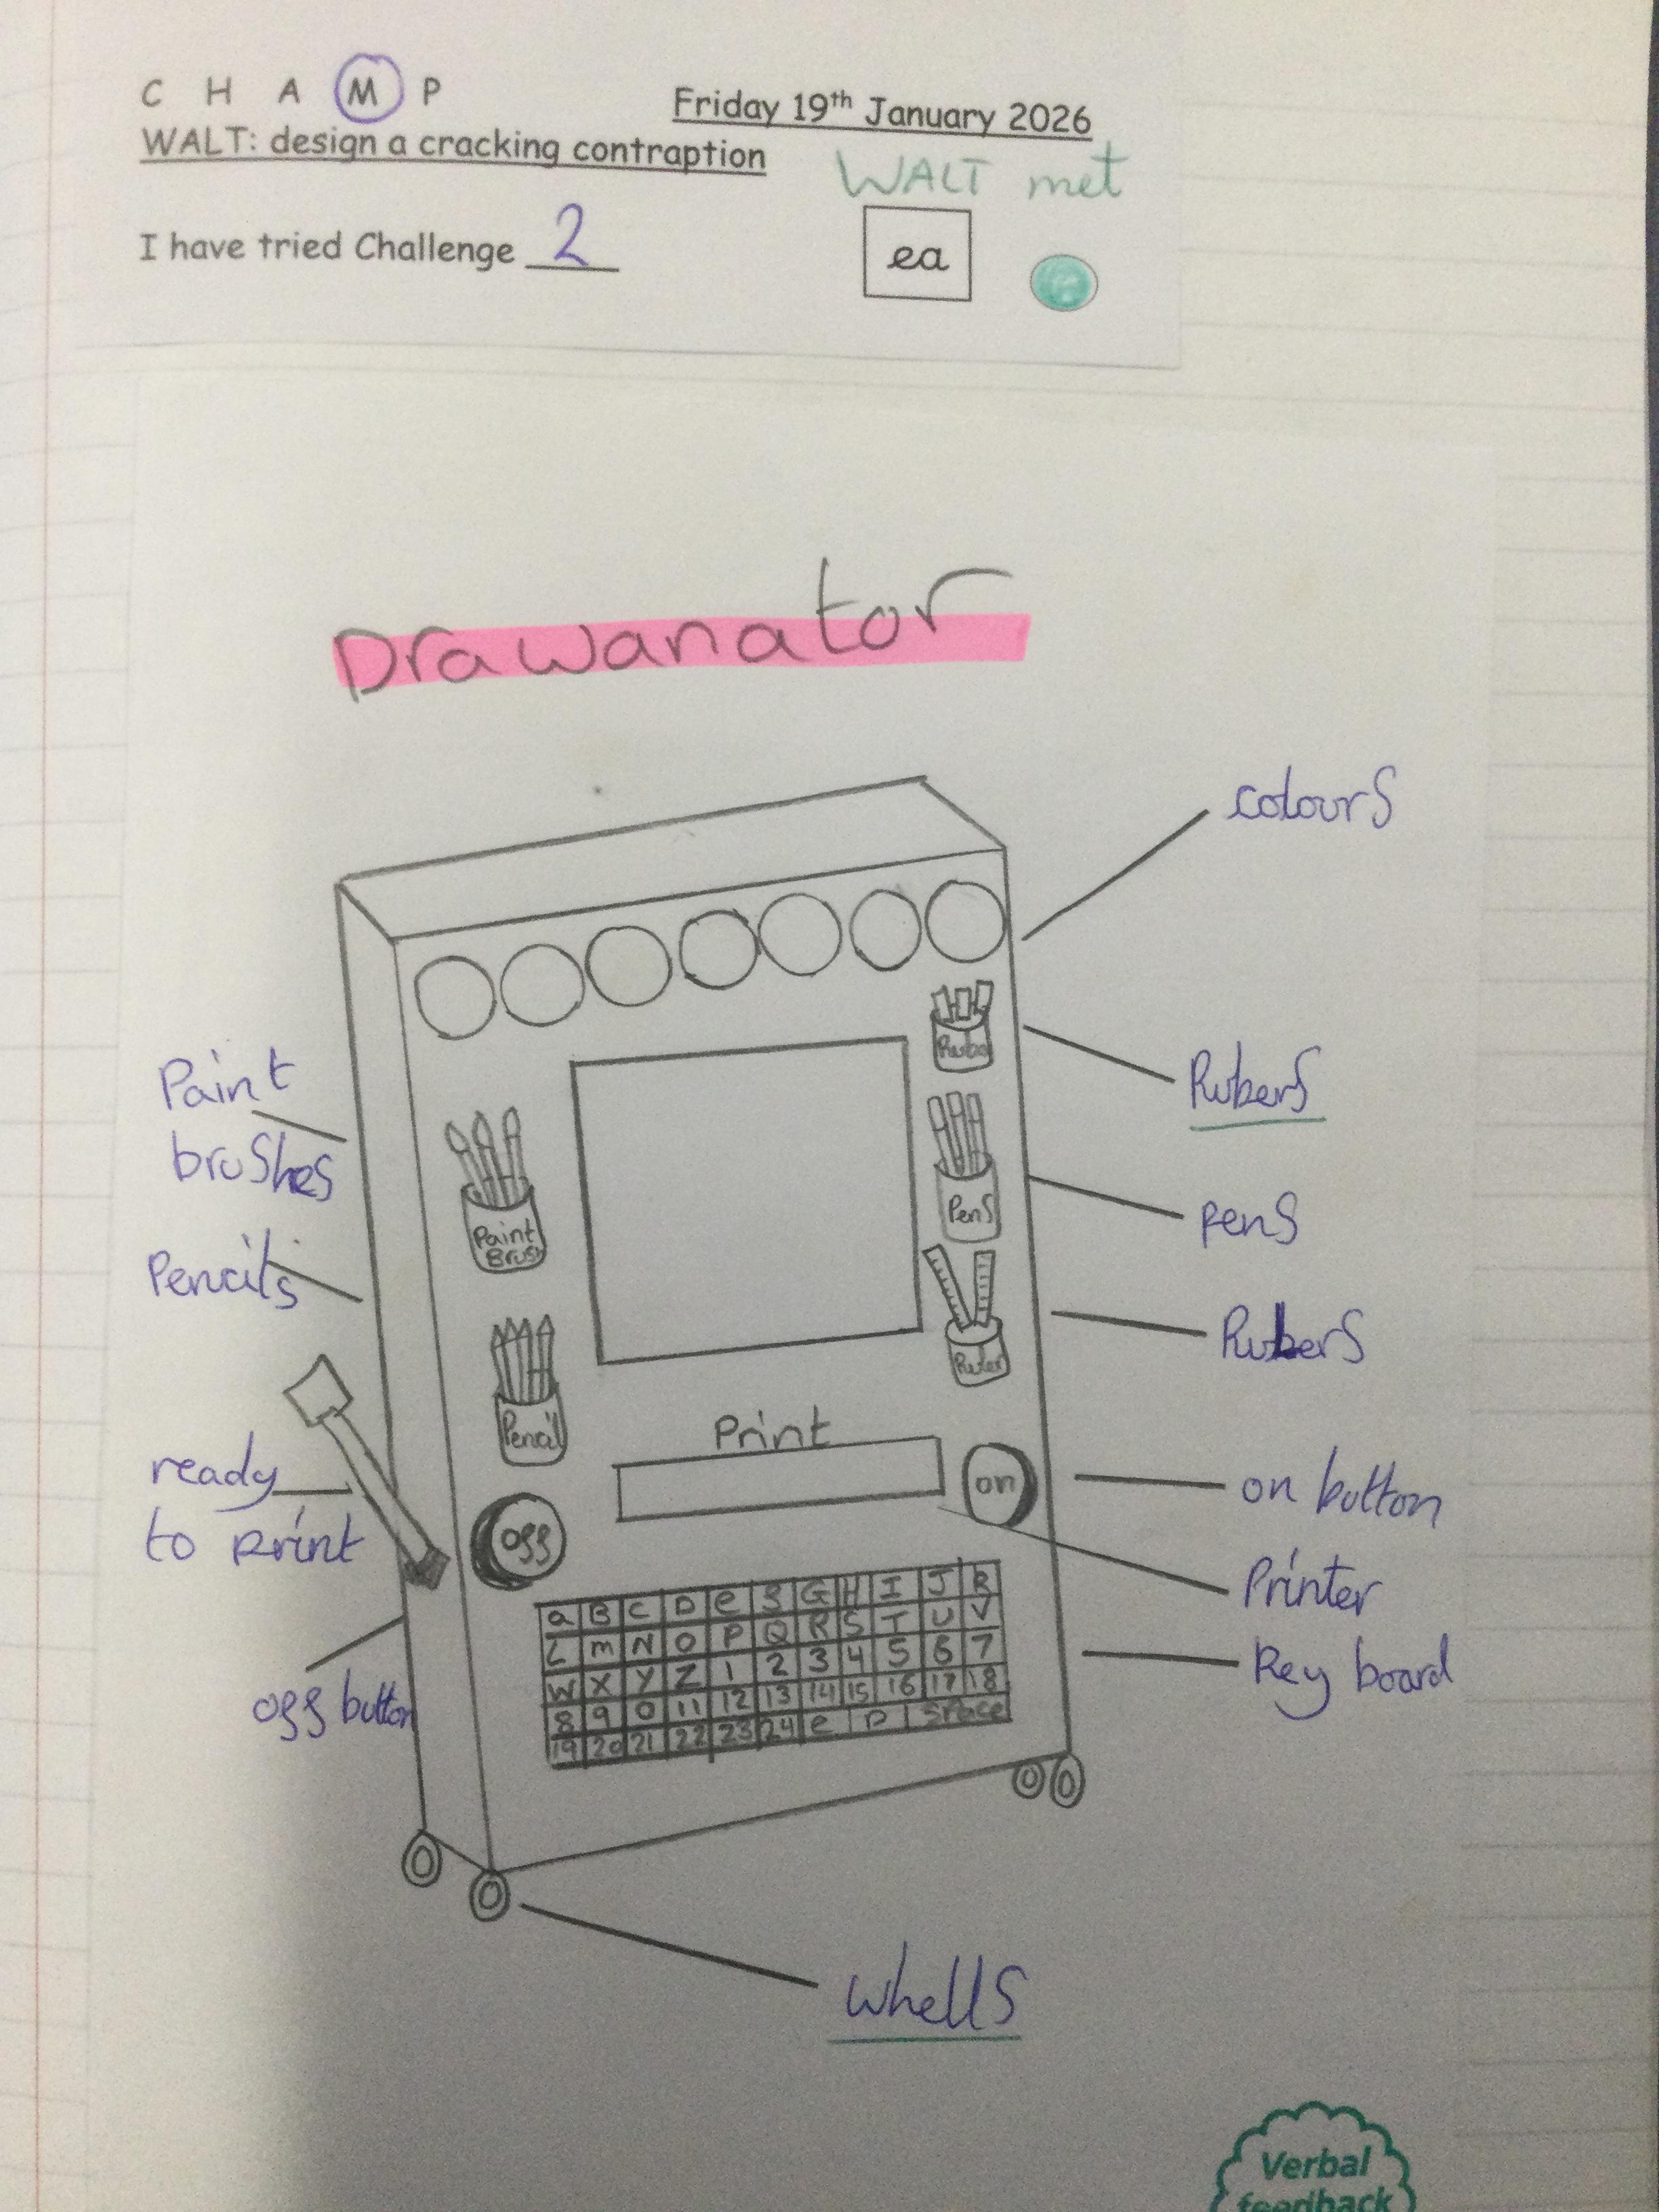 C H A M P
Friday 19th January 2026
WALT: design a cracking contraption
WALT met
I have tried Challenge 2
ea
Drawanator
colours
Rubers
Paint
brushes
Rube
Paint
Brush
Pens
pens
Pencils
Ruler
Rubers
Pencil
Print
ready
to print
on
on button
off
Printer
a B C D e f G H I J K
L m N O P Q R S T U V
W X Y Z 1 2 3 4 5 6 7
8 9 0 11 12 13 14 15 16 17 18
19 20 21 22 23 24 e P Space
Key board
off button
Whells
Verbal
feedback